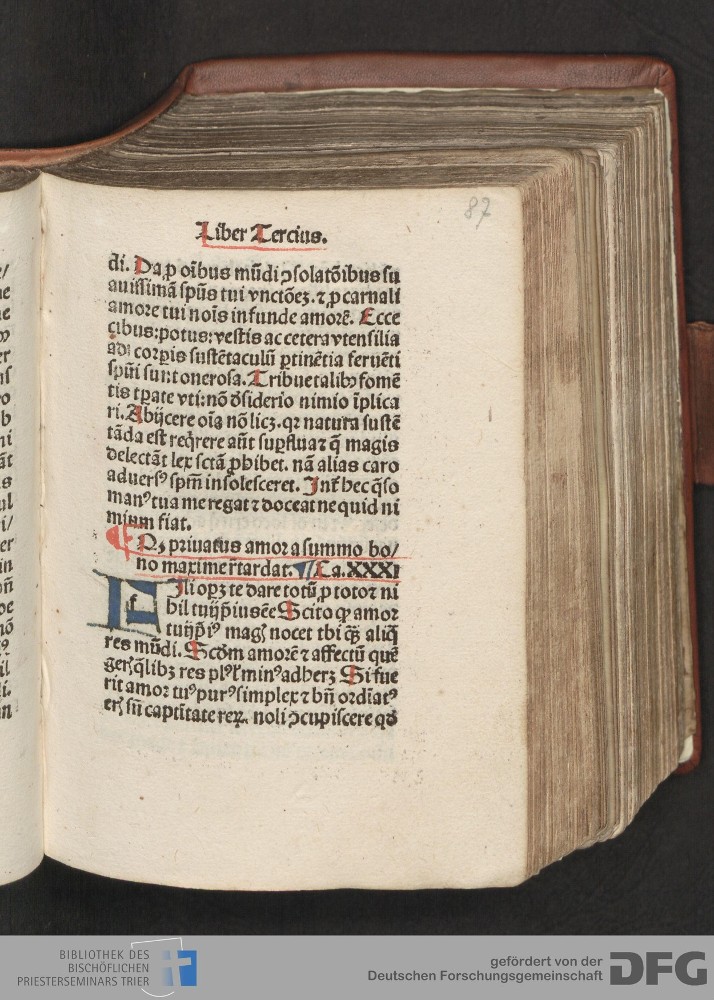 87
Liber Tercius.
di. Da ꝓ oı̄bus mūdi ꝯsolatōibus su
auissimā spūs tui vnctōeꝫ. ⁊ ꝓ carnali
amore tui noı̄s infunde amorē. Ecce
cibus: potus: vestis ac cetera vtensilia
ad corꝑis sustētaculū ꝑtinētia feruēti
spūi sunt onerosa. Tribue talibꝫ fomē
tis tꝑate vti: nō d̄siderio nimio īplica
ri. Abijcere oı̄a nō licꝫ. qꝛ natura sustē
tāda est req̄rere aūt suꝑflua ⁊ q̄ magis
delectāt lex sctā ꝓhibet. nā alias caro
aduersꝰ spm̄ insolesceret. Int̄ hec q̄so
manꝰ tua me regat ⁊ doceat ne quid ni
mium fiat.
priuatus amor a summo bo/
no maxime r̄tardat. Ca. XXXI
Ili opꝫ te dare totū ꝓ toto ⁊ ni
hil tuijp̄ius eē Scito qꝙ amor
tuijp̄iꝰ magꝭ nocet tbi qꝫ̄ aliq̄
res mūdi. Scd̄m amorē ⁊ affectū quē
gerꝭ q̄libꝫ res plꝰ l̄ minꝰ adherꝫ Si fue
rit amor tuꝰ purꝰ simplex ⁊ bn̄ ordīatꝰ
erꝭ sn̄ captītate reꝝ. noli ꝯcupiscere qd̄
BIBLIOTHEK DES
BISCHÖFLICHEN
PRIESTERSEMINARS TRIER
gefördert von der
Deutschen Forschungsgemeinschaft
DFG